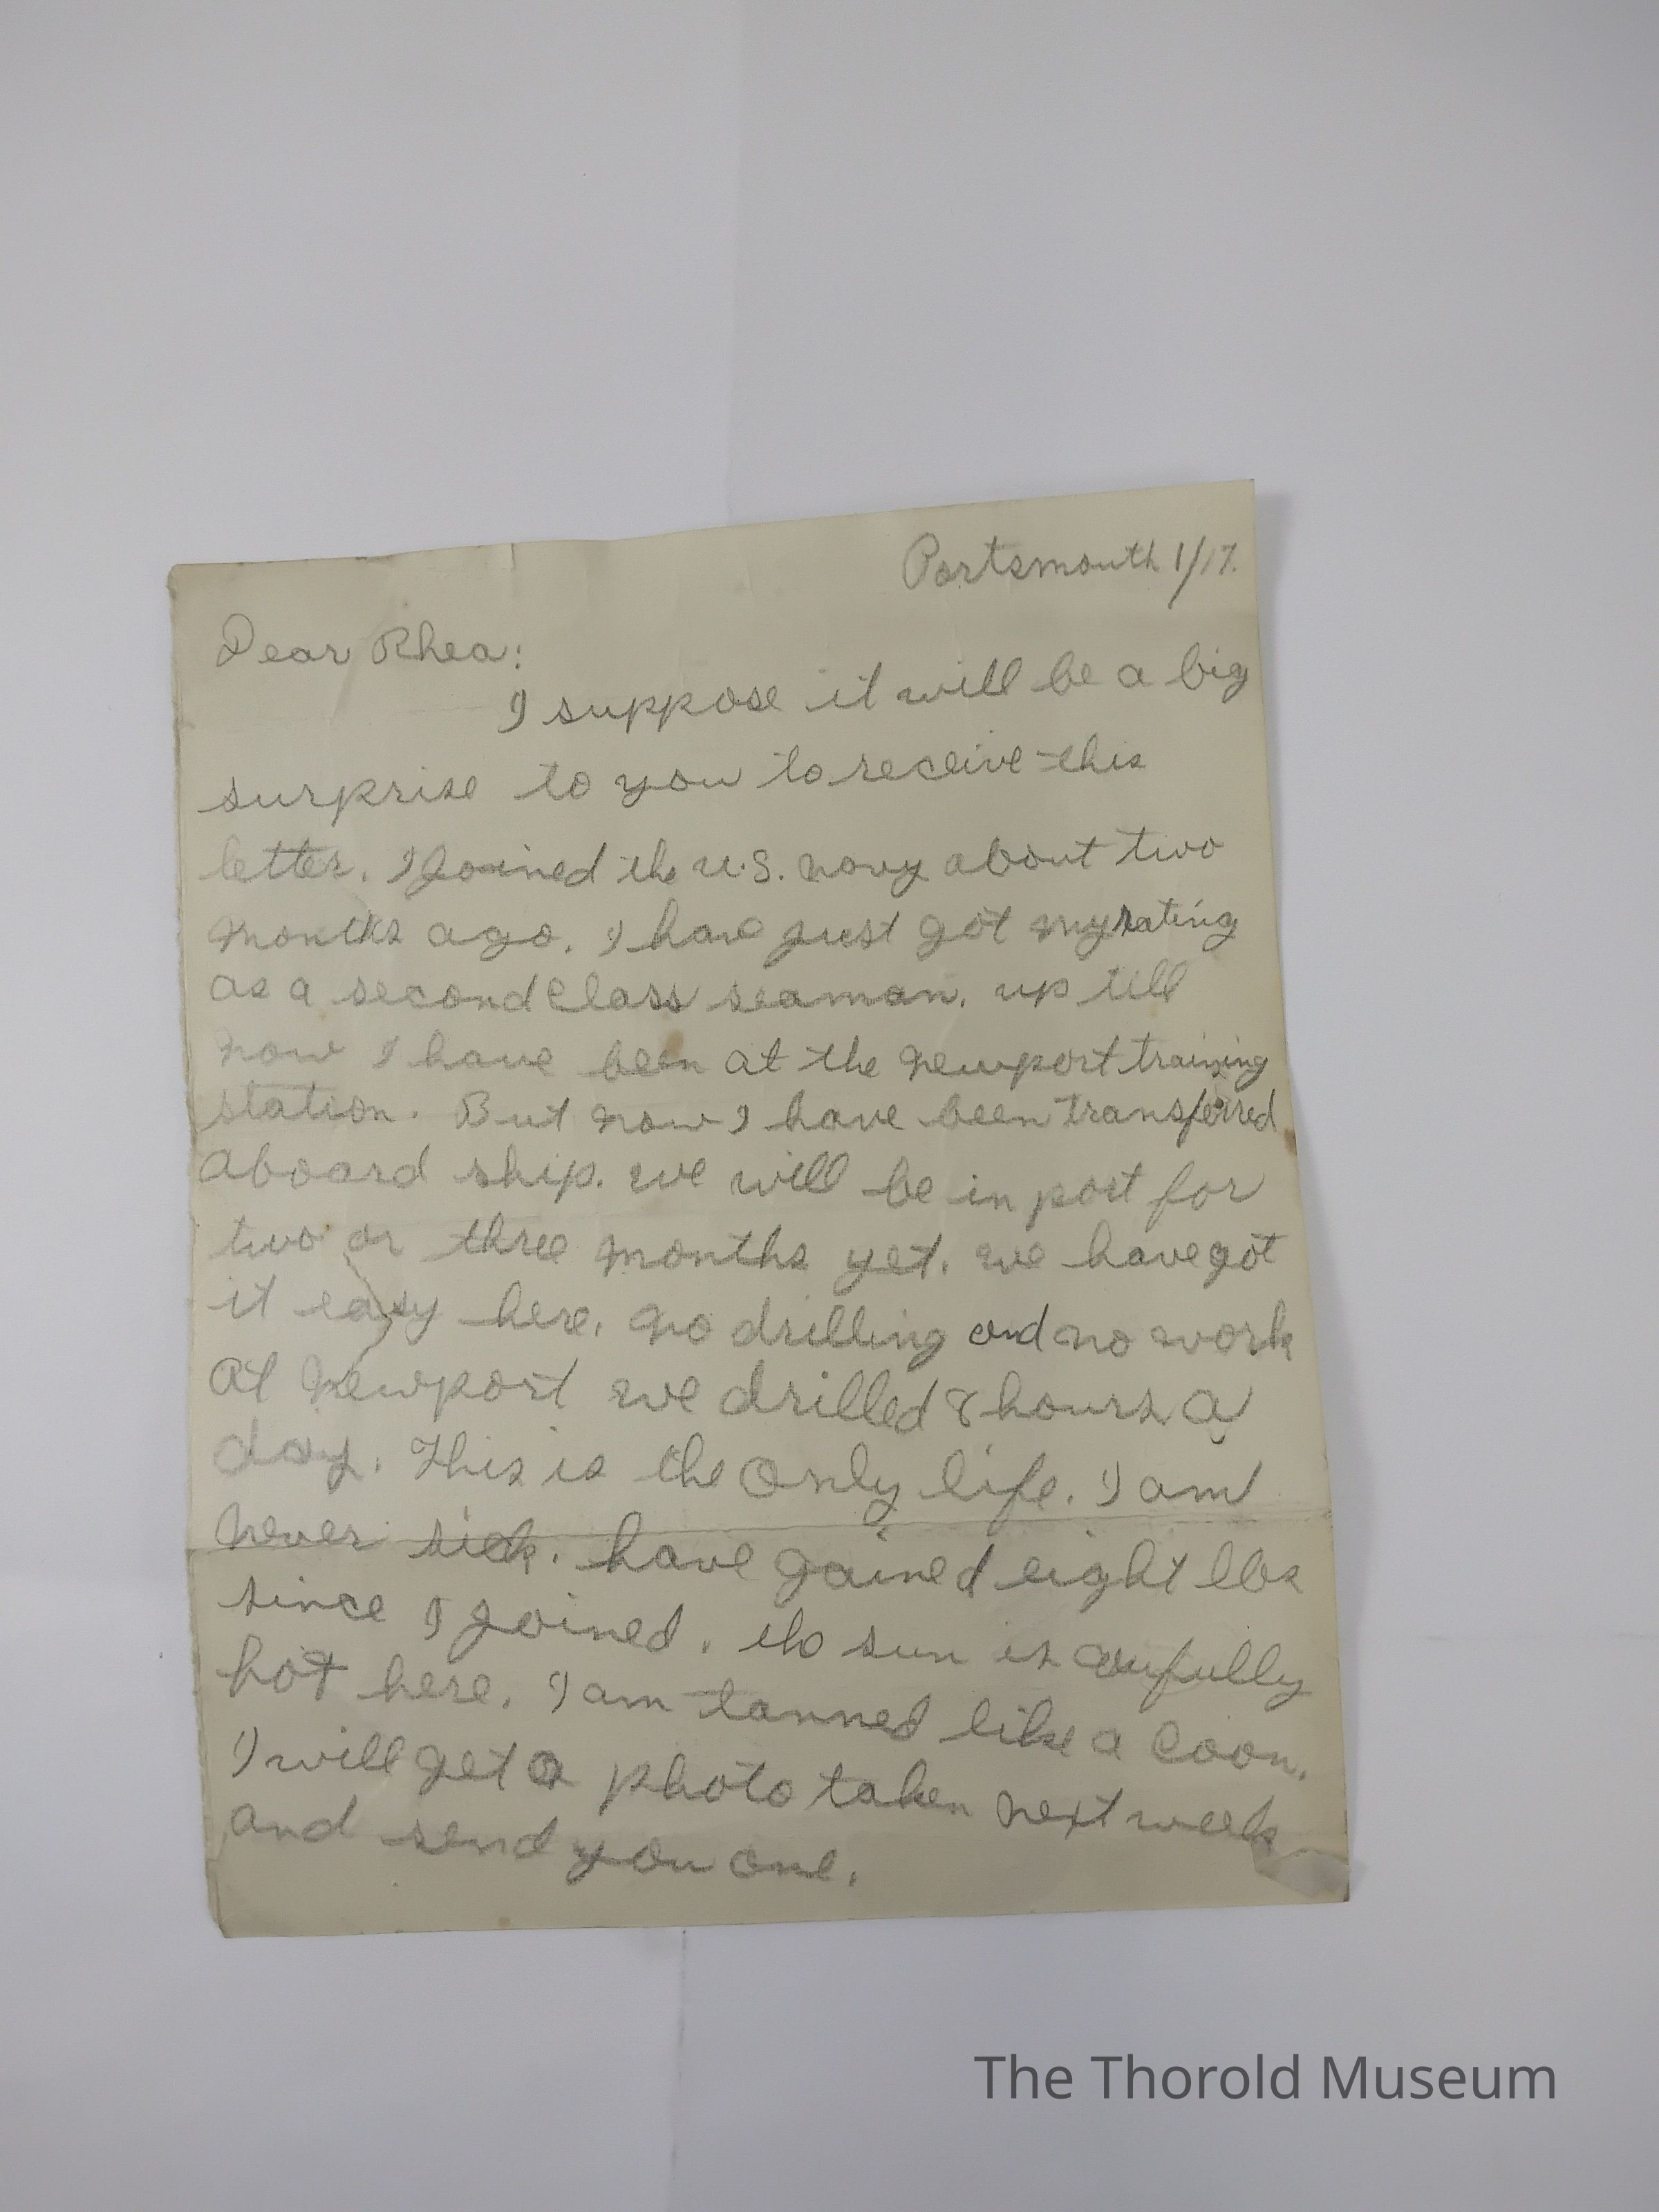 Portsmouth 1/17.
Dear Rhea:
I suppose it will be a big
surprise to you to receive this
letter. I joined the U.S. navy about two
months ago. I have just got my rating
as a second class seaman. up till
now I have been at the newport training
station. But now I have been transferred
aboard ship. we will be in port for
two or three months yet. we have got
it easy here. no drilling and no work
At Newport we drilled 8 hours a
day. This is the only life. I am
never sick. have gained eight lbs
since I joined. the sun is awfully
hot here. I am tanned like a coon.
I will get a photo taken next week
and send you one.
The Thorold Museum